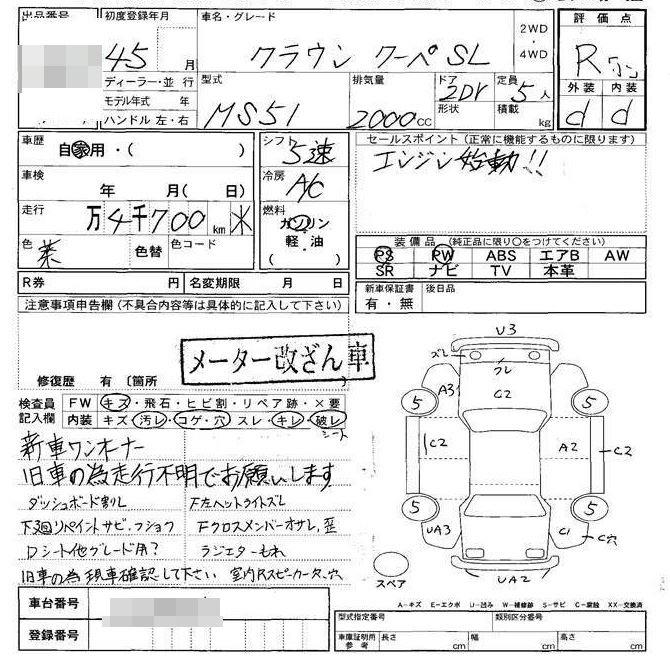 出品番号 初度登録年月 車名・グレード 評価点
45 月 クラウン クーペSL 2WD・4WD R
ディーラー・並行 型式 排気量 ドア 定員 外装 内装
モデル年式 年 MS51 2000cc 2Dr 5人 d d
ハンドル 左・右 形状 積載 kg
車歴 自家用・( ) シフト 5速 セールスポイント (正常に機能するものに限ります)
エンジン始動!!
車検 年 月( 日) 冷房 A/C
走行 万4千700km ※ 燃料 ガソリン
軽・油
( )
色 茶 色替 色コード 装備品 (純正品に限り○をつけてください)
PS PW ABS エアB AW
SR ナビ TV 本革
R券 円 名変期限 月 日 新車保証書 後日品
有・無
注意事項申告欄 (不具合内容等は具体的に記入して下さい)
メーター改ざん車
修復歴 有 〔箇所
検査員 FW キズ・飛石・ヒビ割・リペア跡・×要
記入欄 内装 キズ・汚レ・コゲ・穴・スレ・キレ・破レ
シート
新車ワンオーナー
旧車の為走行不明でお願いします
ダッシュボード割レ F左ヘットライトズレ
下廻リペイントサビ・フショク Fクロスメンバーオサレ,歪
Dシート他グレード用? ラジエターもれ
旧車の為現車確認して下さい 室内Rスピーカー文、穴
U3
ズレ
クレ
A3 C2
5 5
C2 A2 C2
5 5
UA3 C1 C穴
UA2
スペア
A-キズ E-エクボ U-凹み W-補修跡 S-サビ C-腐蝕 XX-交換済
車台番号 型式指定番号 類別区分番号
登録番号 車庫証明用 参考 長さ cm 幅 cm 高さ cm